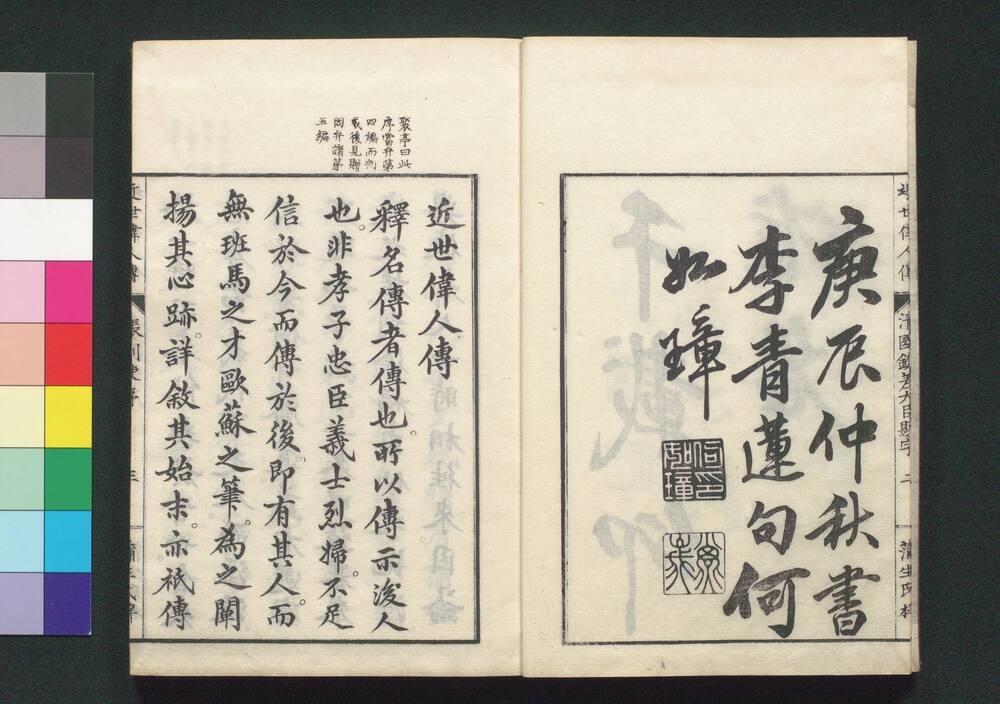 庚辰仲秋書
李青蓮句何
如璋
近世偉人傳
蒲生氏梓
聚亭曰此
序當弁第
四編而刻
成後見贈
因弁諸第
五編
近世偉人傳
釋名傳者傳也。所以傳示後人
也。非孝子忠臣義士烈婦。不足
信於今而傳於後。即有其人。而
無班馬之才歐蘇之筆。為之闡
揚其心跡。詳敘其始末。亦祇傳
近世偉人傳